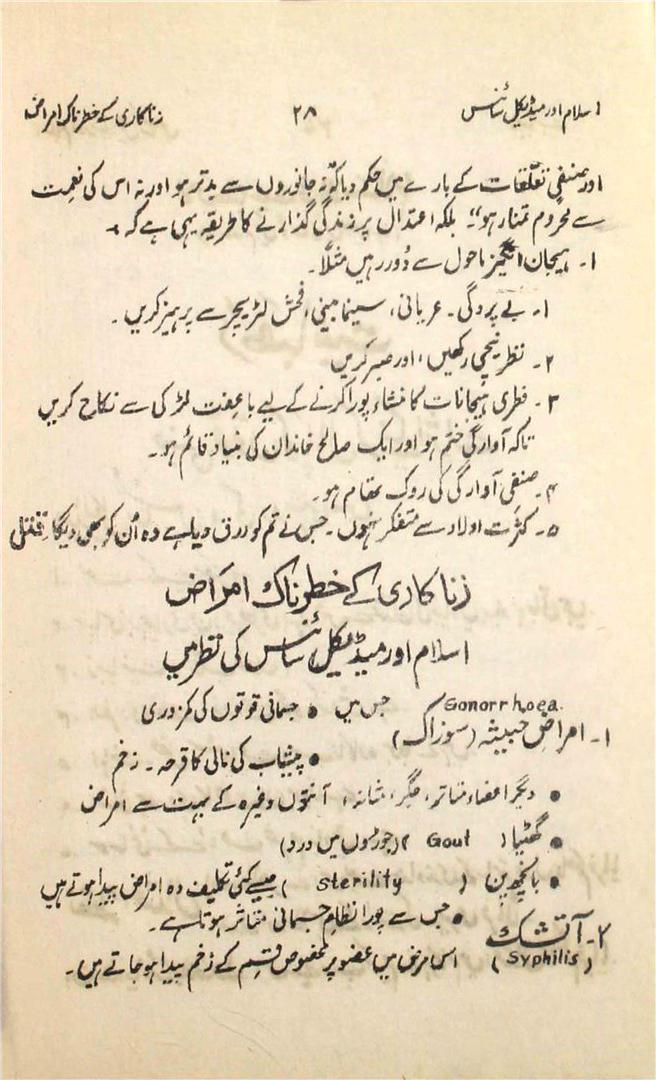 اسلام اور میڈیکل سائنس ۲۸ زناکاری کے خطرناک امراض
اور صنفی تعلقات کے بارے میں حکم دیا کہ نہ جانوروں سے بدتر ہو اور نہ اس کی نعمت
سے محروم تمنار ہو"۔ بلکہ اعتدال پر زندگی گذارنے کا طریقہ یہی ہے کہ
۱۔ ہیجان انگیز ماحول سے دُور رہیں مثلاً۔
۱۔ بے پردگی۔ عریانی، سینما بینی، فحش لٹریچر سے پرہیز کریں۔
۲۔ نظر نیچی رکھیں، اور صبر کریں
۳۔ فطری ہیجانات کا منشاء پورا کرنے کے لیے باعفت لڑکی سے نکاح کریں
تاکہ آوارگی ختم ہو اور ایک صالح خاندان کی بنیاد قائم ہو۔
۴۔ صنفی آوارگی کی روک تھام ہو۔
۵۔ کثرت اولاد سے متفکر نہوں۔ جس نے تم کو رزق دیا ہے وہ اُن کو بھی دیگا
زناکاری کے خطرناک امراض
اسلام اور میڈیکل سائنس کی نظر میں
Gonorrhoea.
۱۔ امراضِ خبیثہ (سوزاک) جس میں • جسمانی قوتوں کی کمزوری
• پیشاب کی نالی کا قرحہ۔ زخم
• دیگر اعضاء متاثر، جگر، مثانہ، آنتوں وغیرہ کے بہت سے امراض
• گھٹیا ( Gout ) (جوڑوں میں درد)
• بانجھ پن ( sterility ) جیسے کئی تکلیف دہ امراض پیدا ہوتے ہیں
۲۔ آتشک • جس سے پورا نظامِ جسمانی متاثر ہوتا ہے۔
(Syphilis) اس مرض میں عضو پر مخصوص قسم کے زخم پیدا ہو جاتے ہیں۔